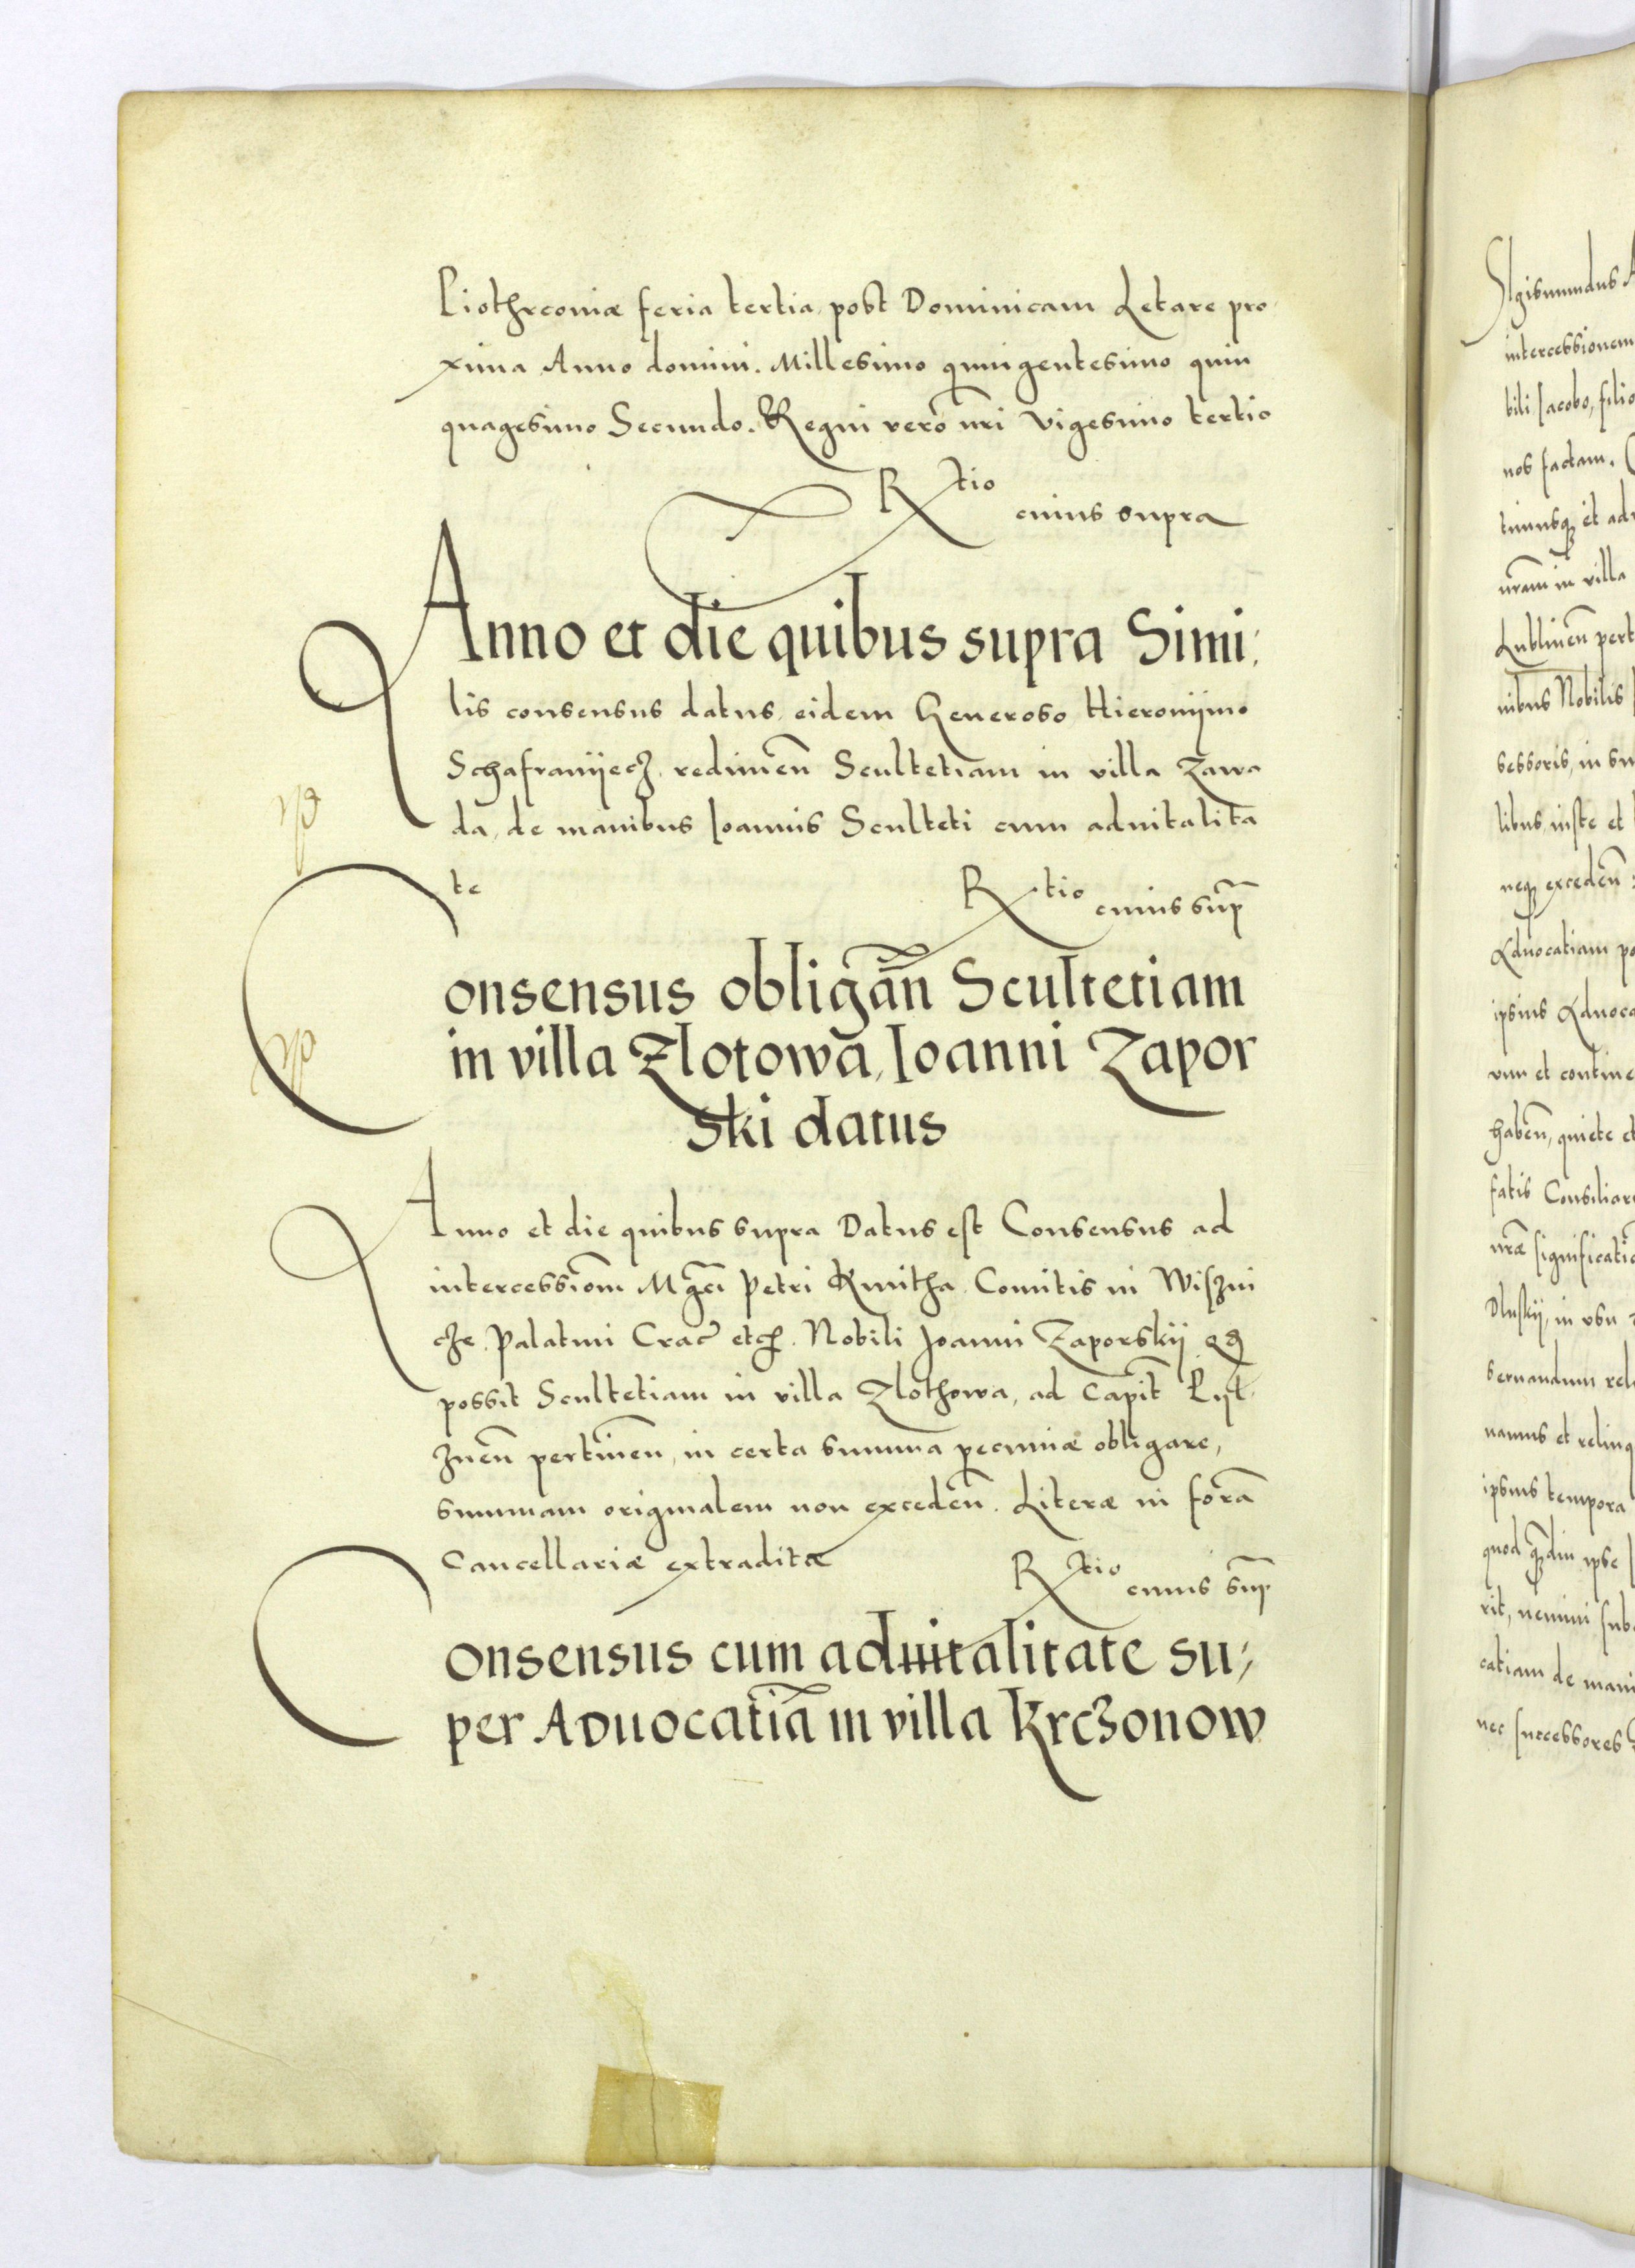 Piothrconiæ feria tertia post Dominicam Letare pro
xima Anno domini. Millesimo quingentesimo quin
quagesimo Secundo. Regni vero nri Vigesimo tertio
Rtio
cuius supra
Anno et die quibus supra Simi,
lis consensus datus eidem Generoso Hieronijmo
Schafranijecz redimen Scultetiam in villa Zawa
da, de manibus Ioannis Sculteti cum aduitalita
te
Rtio
cuius sup
Consensus obligan Scultetiam
in villa Zlotowa, Ioanni Zapor
ski datus
Anno et die quibus supra Datus est Consensus ad
intercessiom Mgci Petri Kmitha Comitis in Wiszni
cze Palatini Crac etc. Nobili Joanni Zaporskij qd
possit Scultetiam in villa Zlothowa, ad Capit Rijt
znen pertinen, in certa summa pecuniæ obligare,
summam originalem non exceden. Literæ in fora
Cancellariæ extraditæ
Rtio
cuius sup
Consensus cum aduitalitate su,
per Aduocatia in villa Krczonow
Sigismundus A
intercessionem
bili Iacobo, filio
nos factam.
timusq et adu
nram in villa
Lublinen pert
nibus Nobilis
sessoris, in su
libus, iuste et
neq exceden
Aduocatiam po
ipsius Aduoca
uim et contine
haben, quiete et
fatis Consiliar
nræ significatio
Dluskij, in usu
seruandum reli
namus et relinq
ipsius tempora
quod qdiu ipse
rit, nemini sub
catiam de mani
nec successores